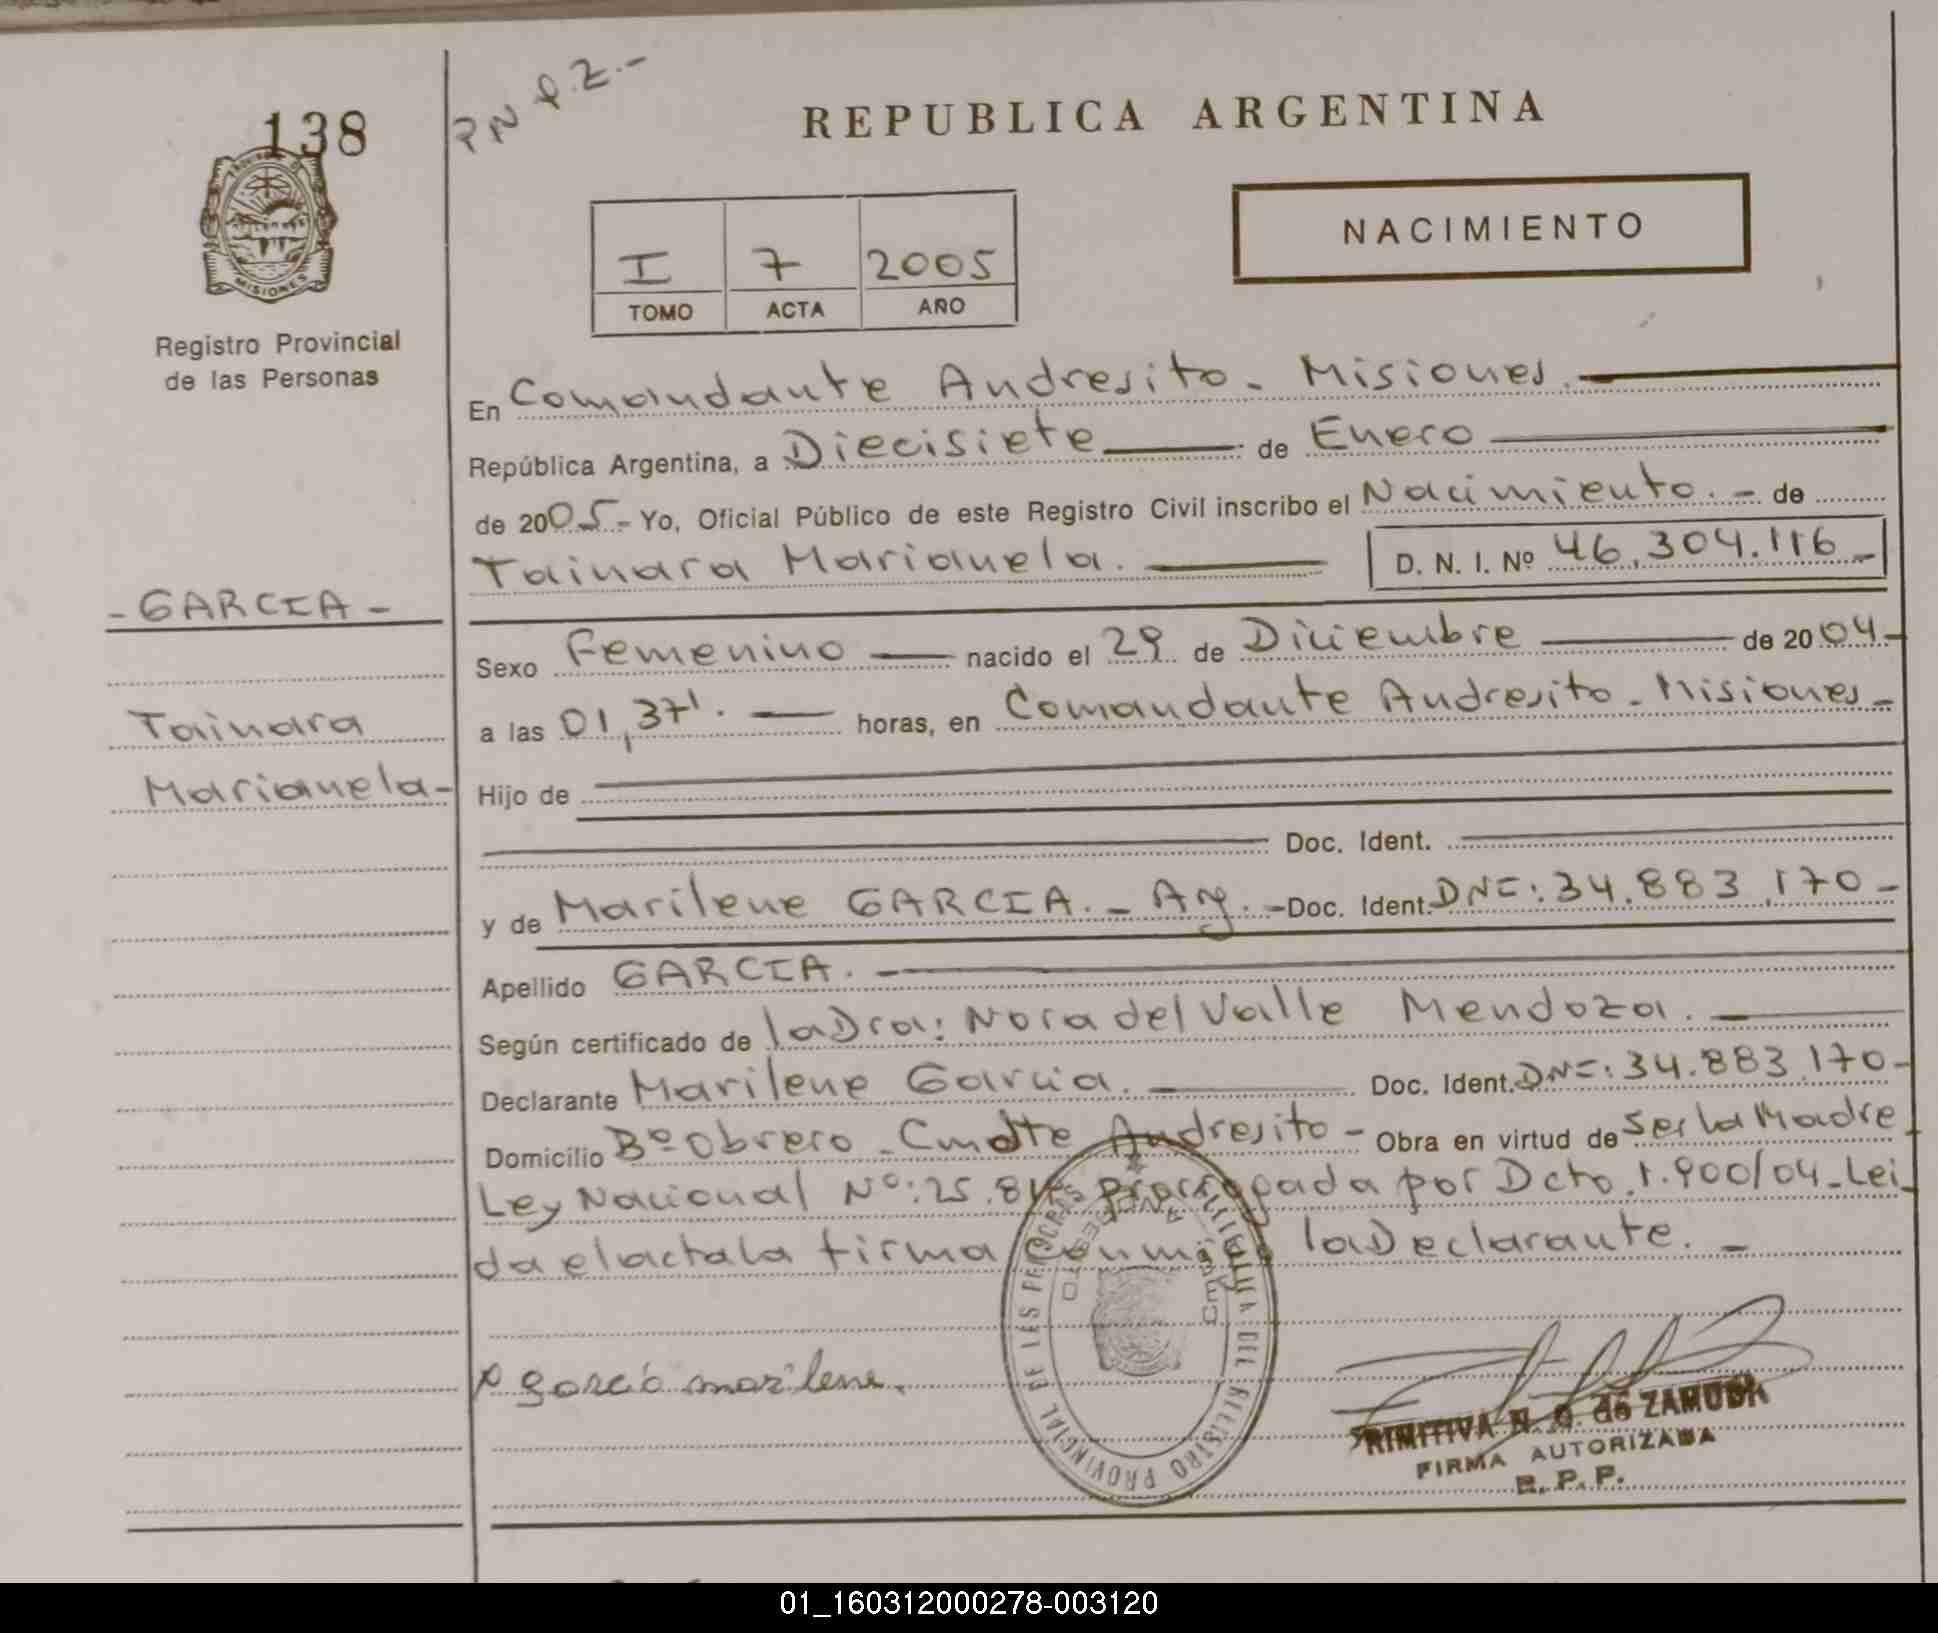 138
PN
REPUBLICA ARGENTINA
MISIONES
Registro Provincial
de las Personas
I 7 2005
TOMO ACTA AÑO
NACIMIENTO
En Comandante Andresito - Misiones.
República Argentina, a Diecisiete de Enero
de 2005.- Yo, Oficial Público de este Registro Civil inscribo el Nacimiento.- de
Tainara Marianuela. D. N. I. Nº 46.304.116-
- GARCIA -
Tainara
Marianuela-
Sexo Femenino nacido el 29 de Diciembre de 2004-
a las 01,37'. horas, en Comandante Andresito - Misiones-
Hijo de
Doc. Ident.
y de Marilene GARCIA.- Arg.- Doc. Ident. DNI: 34.883.170-
Apellido GARCIA.
Según certificado de la Dra: Nora del Valle Mendoza.
Declarante Marilene Garcia. Doc. Ident. DNI: 34.883.170-
Domicilio Bº Obrero - Cmdte Andresito - Obra en virtud de Ser la Madre
Ley Nacional Nº: 25.819 prorrogada por Dcto. 1.900/04 - Lei-
da el acta la firma Conmigo la Declarante. -
garcia marilene.
PRIMITIVA N. O. de ZAMUDIO
FIRMA AUTORIZADA
R. P. P.
REGISTRO PROVINCIAL DE LAS PERSONAS
01_160312000278-003120